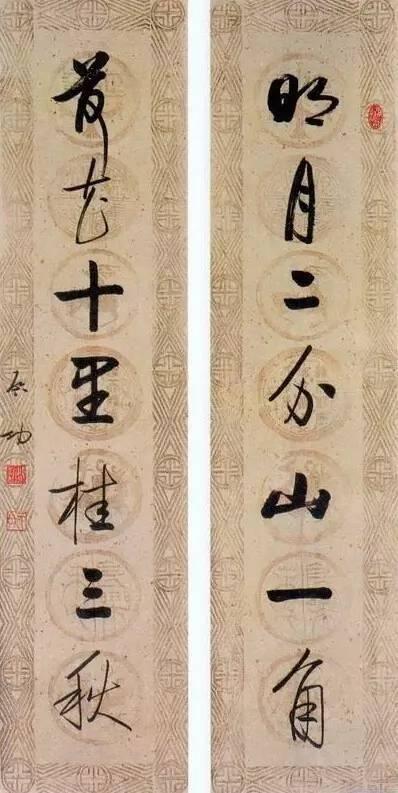 明月二分山一角
荷花十里桂三秋
启功